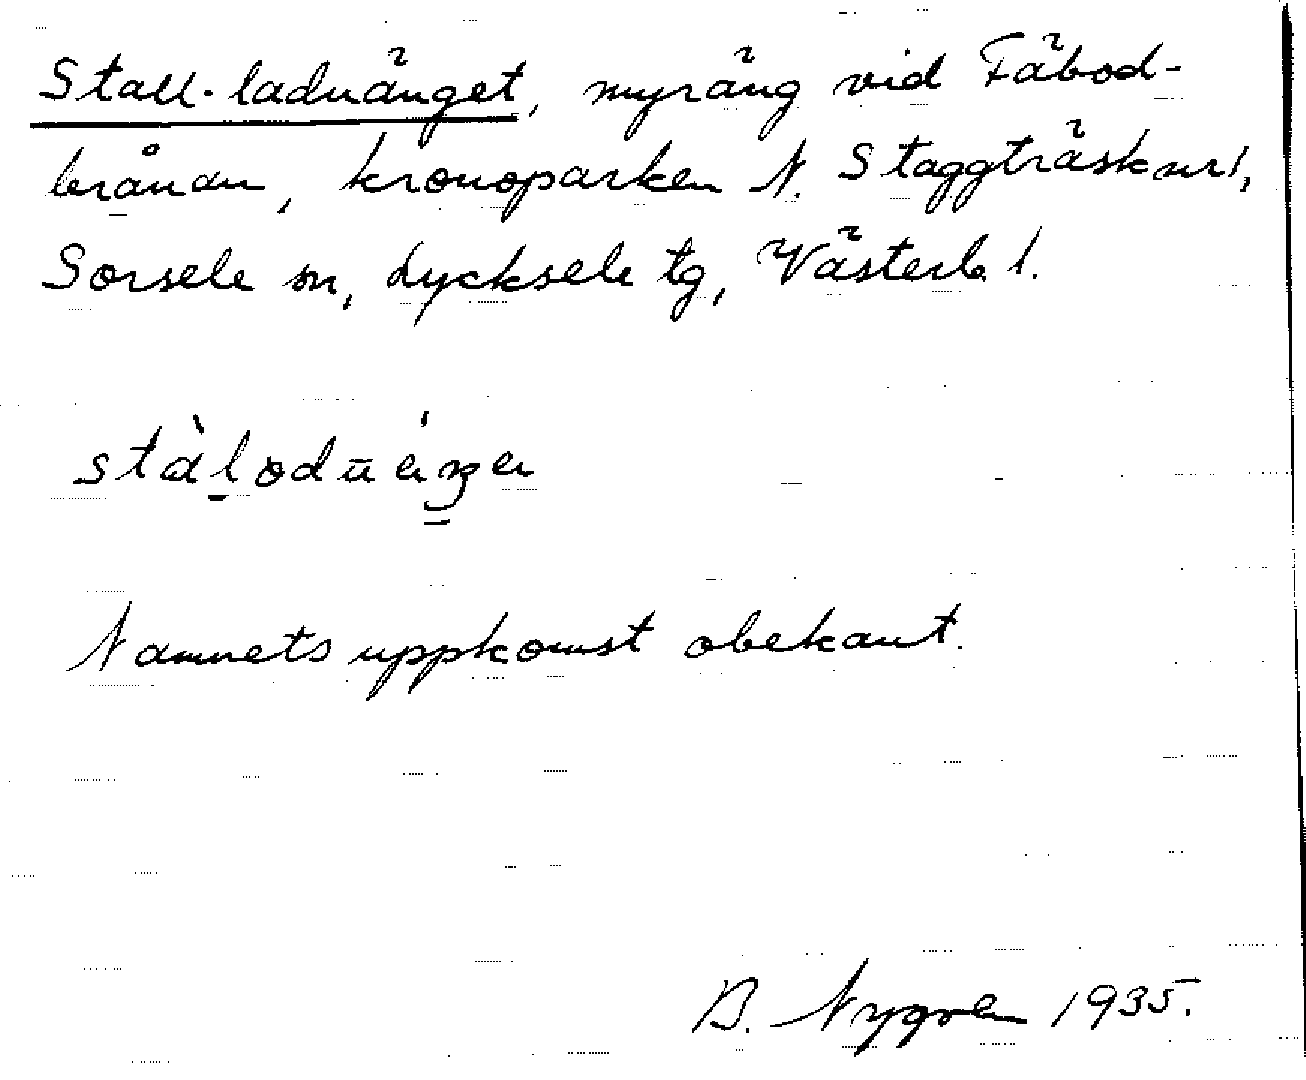 Stall-laduänget, myräng vid Fäbod-
brånan, kronoparken N. Staggträsknr1,
Sorsele sn, Lycksele tg, Västerb. l.
Namnets uppkomst obekant.
B. Nygren 1935.